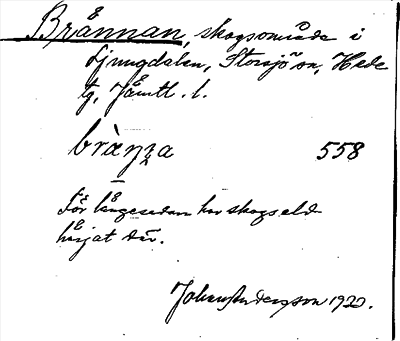 Brånnan, skogsområde i
Ljungdalen, Storsjö sn, Hede
tg, Jämtl. l.
brànna 558
För längesedan har skogseld
härjat där.
Johan Anderson 1920.